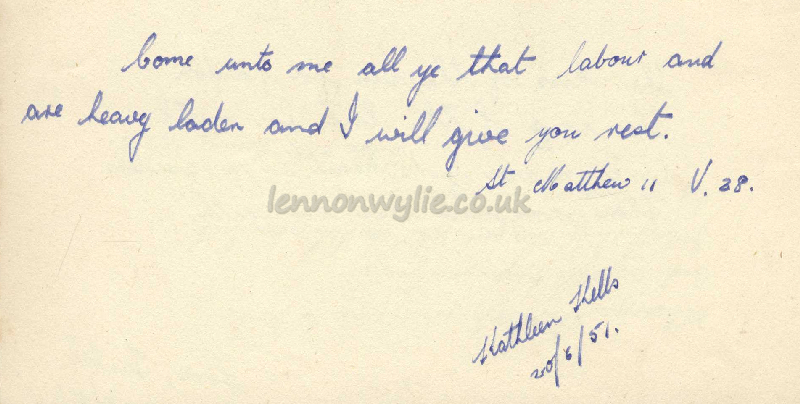 Come unto me all ye that labour and
are heavy laden and I will give you rest.
St Matthew 11 V. 28.
lennonwylie.co.uk
Kathleen Kells
20/6/51.